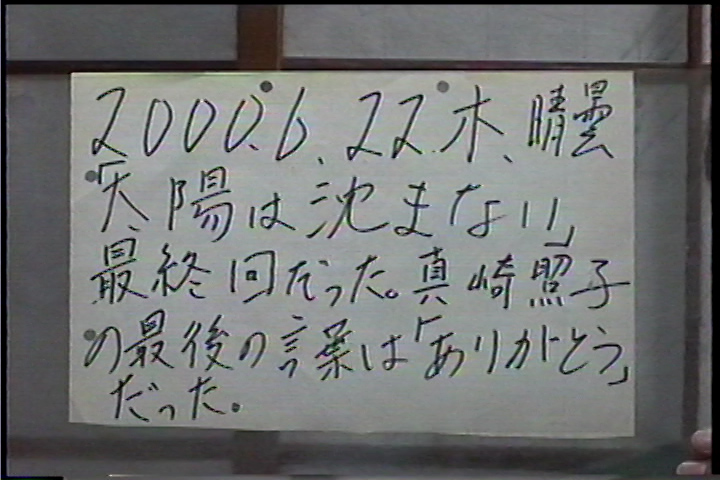 2000.6.22.木、晴曇
「太陽は沈まない」
最終回だった。真崎照子
の最後の言葉は「ありがとう」
だった。